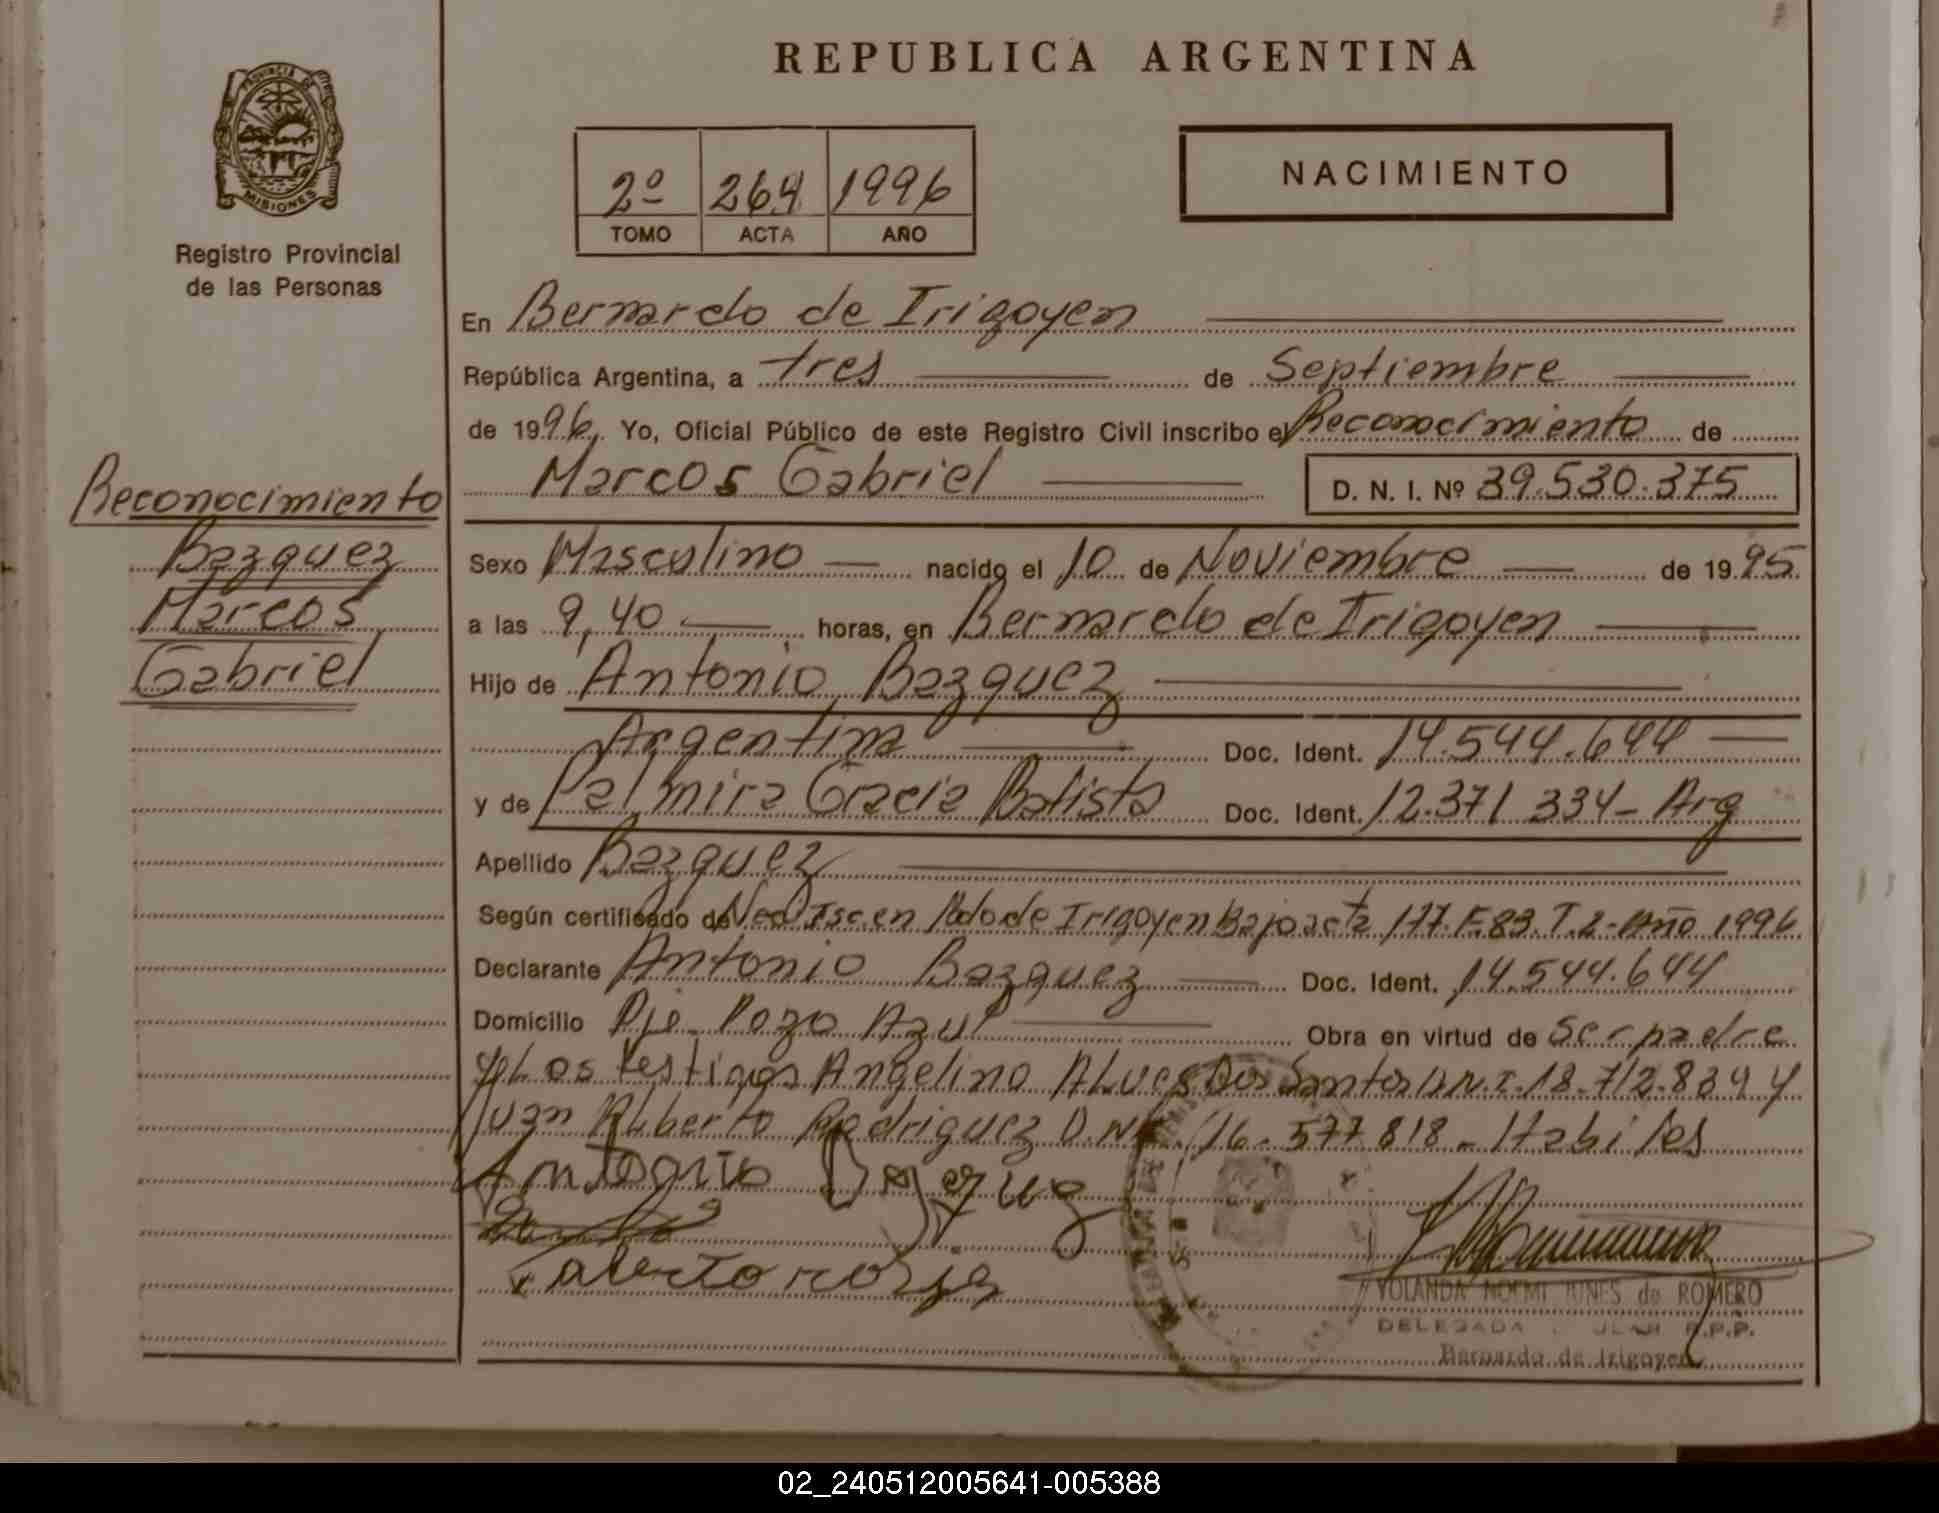 REPUBLICA ARGENTINA
PROVINCIA DE
MISIONES
Registro Provincial
de las Personas
2º 264 1996
TOMO ACTA AÑO
NACIMIENTO
En Bernardo de Irigoyen
República Argentina, a tres de Septiembre
de 1996. Yo, Oficial Público de este Registro Civil inscribo el Reconocimiento de
Marcos Gabriel D. N. I. Nº 39.530.375
Reconocimiento
Bazquez
Marcos
Gabriel
Sexo Masculino nacido el 10 de Noviembre de 1995
a las 9,40 horas, en Bernardo de Irigoyen
Hijo de Antonio Bazquez
Argentina Doc. Ident. 14.544.644
y de Palmira Gracia Batista Doc. Ident. 12.371 334- Arg
Apellido Bazquez
Según certificado de Isc. en Bdo de Irigoyen Bajo acta 177. F.83. T.2- Año 1996
Declarante Antonio Bazquez Doc. Ident. 14.544.644
Domicilio Pje. Pozo Azul Obra en virtud de Ser padre
y Los testigos Angelino ALves Dos Santos D.N.I. 18.712.839 y
Juan Alberto Rodriguez D.N.I. 16.577 818 - Habiles
Antonio Bazquez
YOLANDA NOEMI de ROMERO
DELEGADA R.P.P.
Bernardo de Irigoyen
02_240512005641-005388